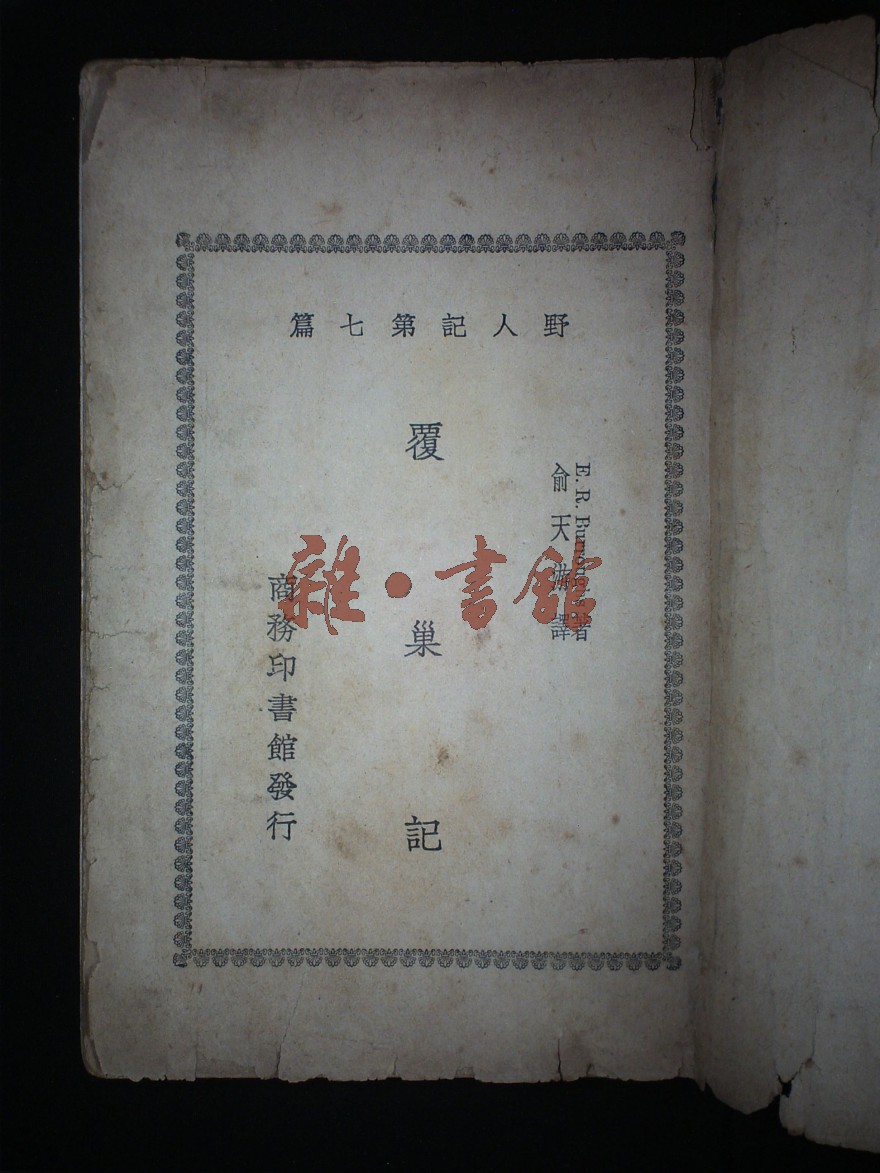 野人記第七篇
E. R. Burroughs 著
俞天游譯
覆巢記
商務印書館發行
雜·書館